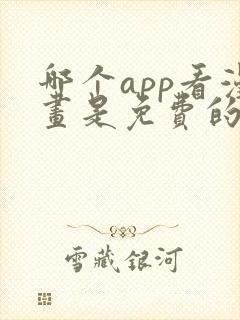 哪个app看漫
畫是免費的
雪藏銀河